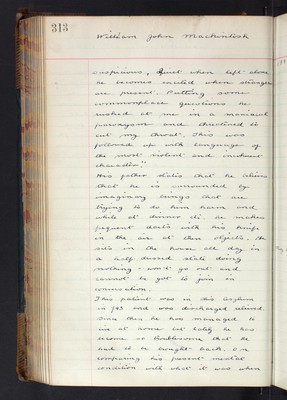 313
William John Mackintosh
suspicious, quiet when left alone
he becomes excited when strangers
are present. Putting some
commonplace questions he
rushed at me in a maniacal
paroxysm and threatened to
cut my throat. This was
followed up with language of
the most violent and incoherent
character."
His father states that he believes
that he is surrounded by
imaginary beings that are
trying to do him harm and
while at dinner etc. he makes
frequent darts with his knife
in the air at these objects. He
sits in the house all day in
a half dazed state doing
nothing - won't go out and
cannot be got to join in
conversation.
This patient was in this asylum
in 1893 and was discharged relieved.
Since then he has managed to
live at home but lately he has
become so troublesome that he
had to be brought back. On
comparing his present mental
condition with what it was when